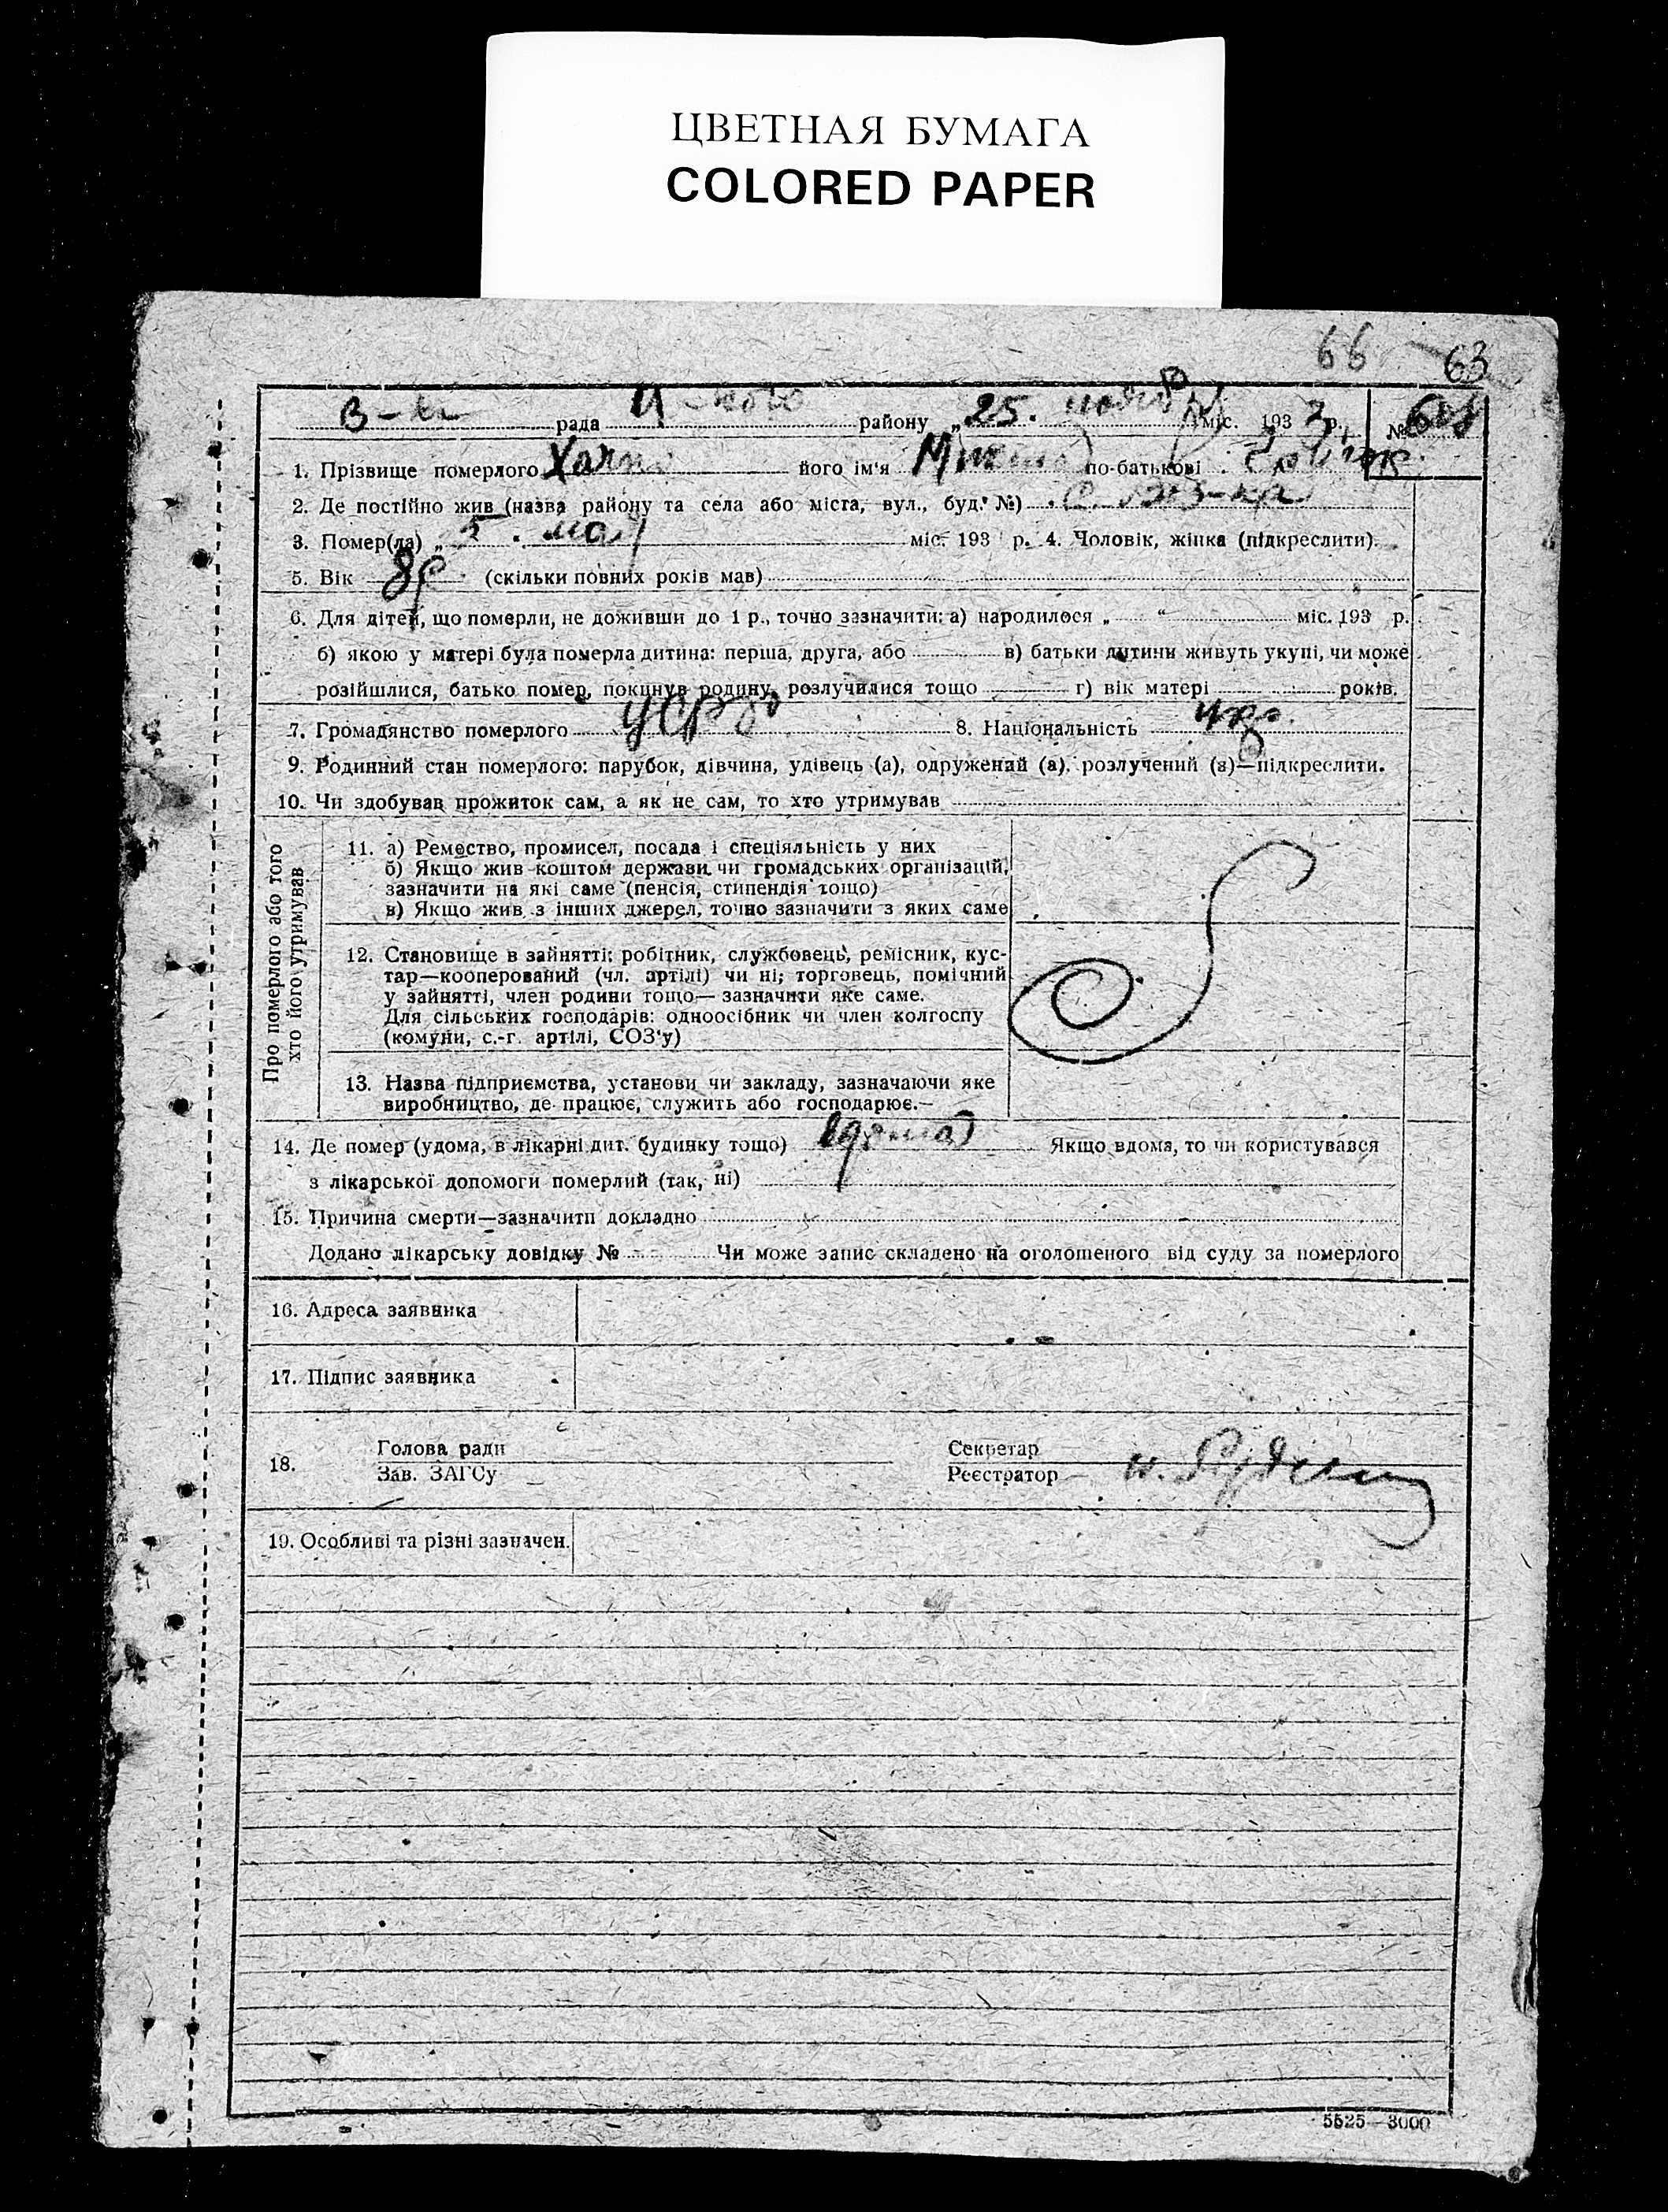 ЦВЕТНАЯ БУМАГА
COLORED PAPER
66 63
В- рада района району „25. ноября міс. 1933 р. №
1. Прізвище померлого його ім'я по-батькові
2. Де постійно жив (назва району та села або міста, вул., буд. №) с.
3. Помер(ла) „5. мая міс. 193 р. 4. Чоловік, жінка (підкреслити).
5. Вік 8р (скільки повних років мав)
6. Для дітей, що померли, не доживши до 1 р., точно зазначити: а) народилося „ “ міс. 193 р.
б) якою у матері була померла дитина: перша, друга, або в) батьки дитини живуть укупі, чи може
розійшлися, батько помер, покинув родину, розлучилися тощо г) вік матері років.
7. Громадянство померлого УСРР 8. Національність укр.
9. Родинний стан померлого: парубок, дівчина, удівець (а), одружений (а), розлучений (а)—підкреслити.
10. Чи здобував прожиток сам, а як не сам, то хто утримував
Про померлого або того хто його утримував
11. а) Ремество, промисел, посада і спеціяльність у них
б) Якщо жив коштом держави чи громадських організацій,
зазначити на які саме (пенсія, стипендія тощо)
в) Якщо жив з інших джерел, точно зазначити з яких саме
12. Становище в зайнятті: робітник, службовець, ремісник, кус-
тар—кооперований (чл. артілі) чи ні; торговець, помічний
у зайнятті, член родини тощо— зазначити яке саме.
Для сільських господарів: одноосібник чи член колгоспу
(комуни, с.-г. артілі, СОЗ'у)
13. Назва підприємства, установи чи закладу, зазначаючи яке
виробництво, де працює, служить або господарює.—
14. Де помер (удома, в лікарні дит. будинку тощо) вдома Якщо вдома, то чи користувався
з лікарської допомоги померлий (так, ні)
15. Причина смерти—зазначити докладно
Додано лікарську довідку № Чи може запис складено на оголошеного від суду за померлого
16. Адреса заявника
17. Підпис заявника
18. Голова ради Секретар
Зав. ЗАГСу Реєстратор
19. Особливі та різні зазначен.
5525—3000